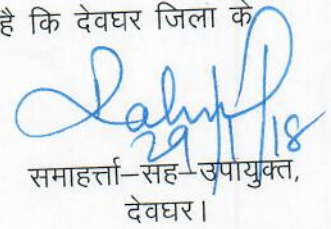 है कि देवघर जिला के
29/1/18
समाहर्त्ता–सह–उपायुक्त,
देवघर।